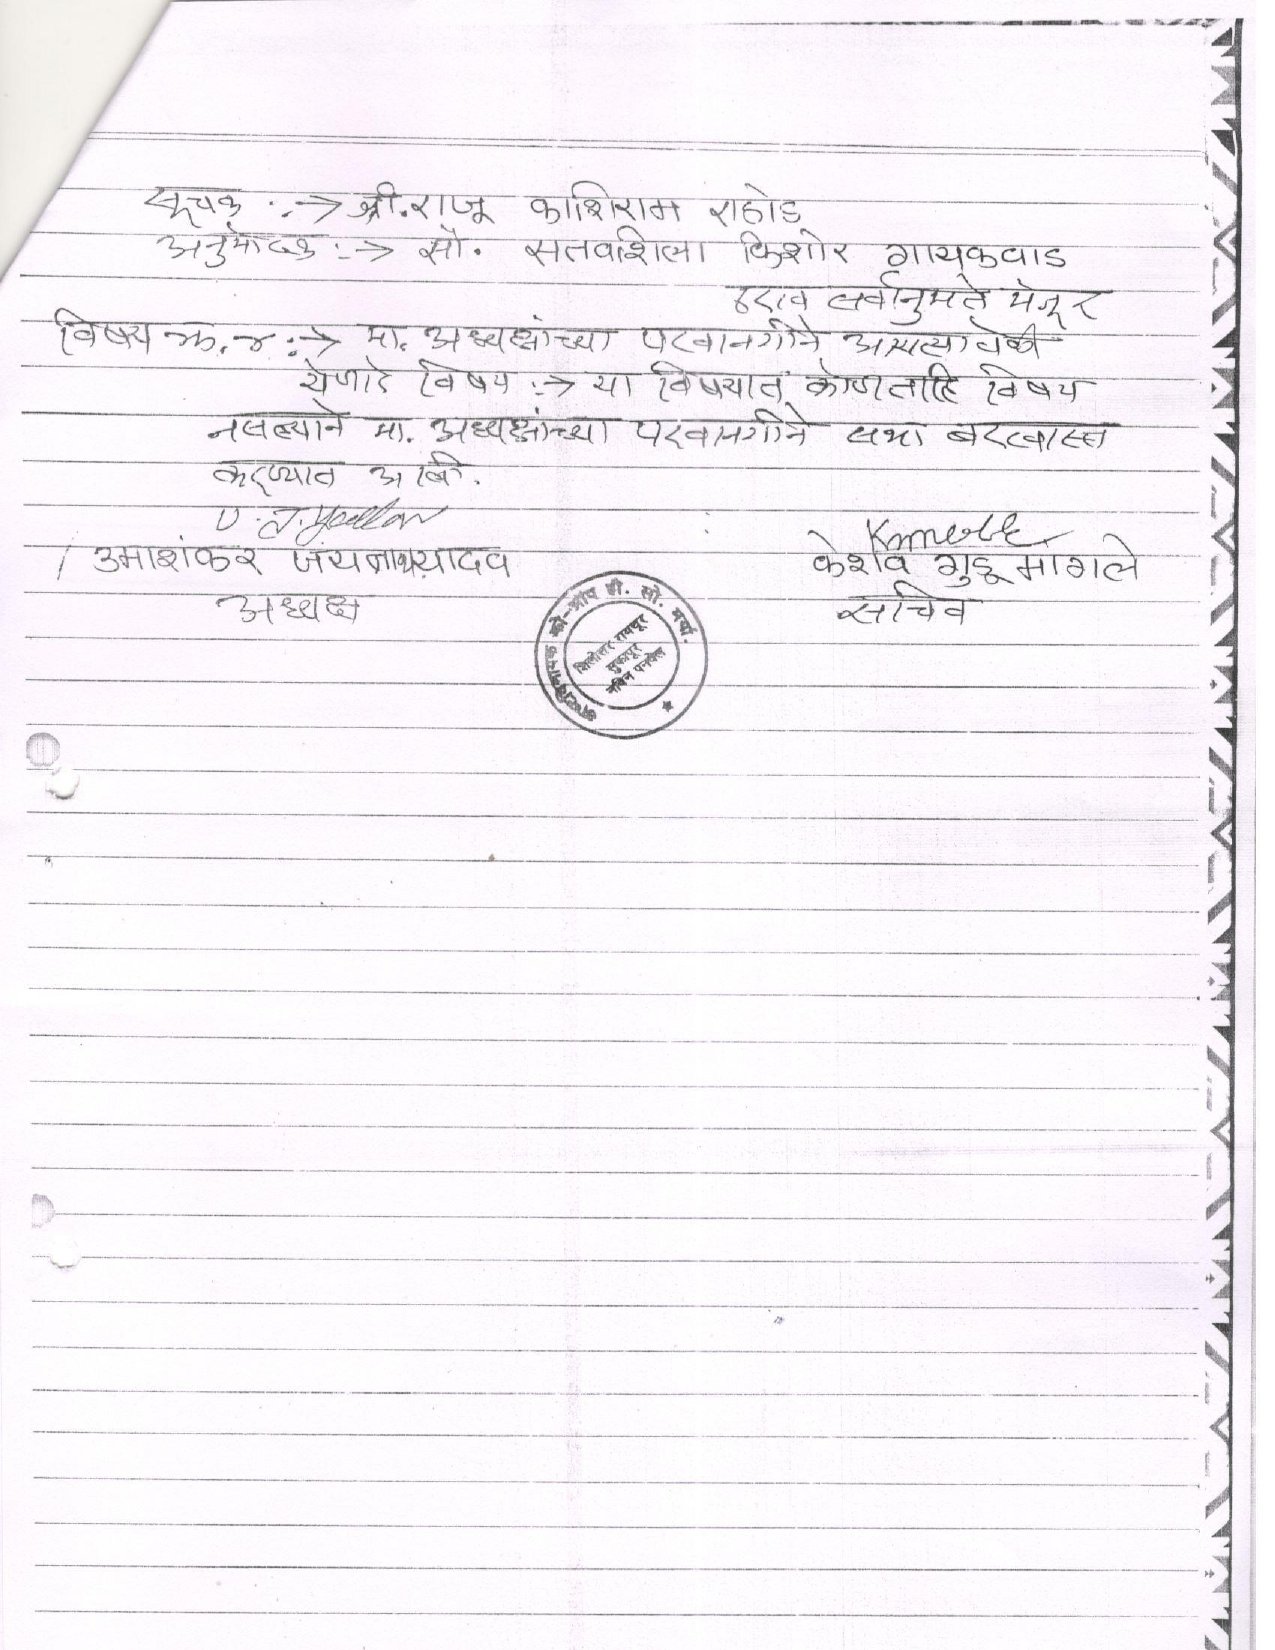 सूचक :→ श्री. राजू काशिराम राठोड
अनुमोदक :→ सौ. सतवशिला किशोर गायकवाड
ठराव सर्वानुमते मंजूर
विषय क्र. ४ :→ मा. अध्यक्षांच्या परवानगीने आयत्यावेळी
येणारे विषय :→ या विषयात कोणताहि विषय
नसल्याने मा. अध्यक्षांच्या परवानगीने सभा बरखास्त
करण्यात आली.
उमाशंकर जयनाथ यादव
केशव गुडू मागले
अध्यक्ष
सचिव
को-ऑप ही. सो. मर्या.
शिलोत्तर रायचूर
सुकापूर
नविन पनवेल